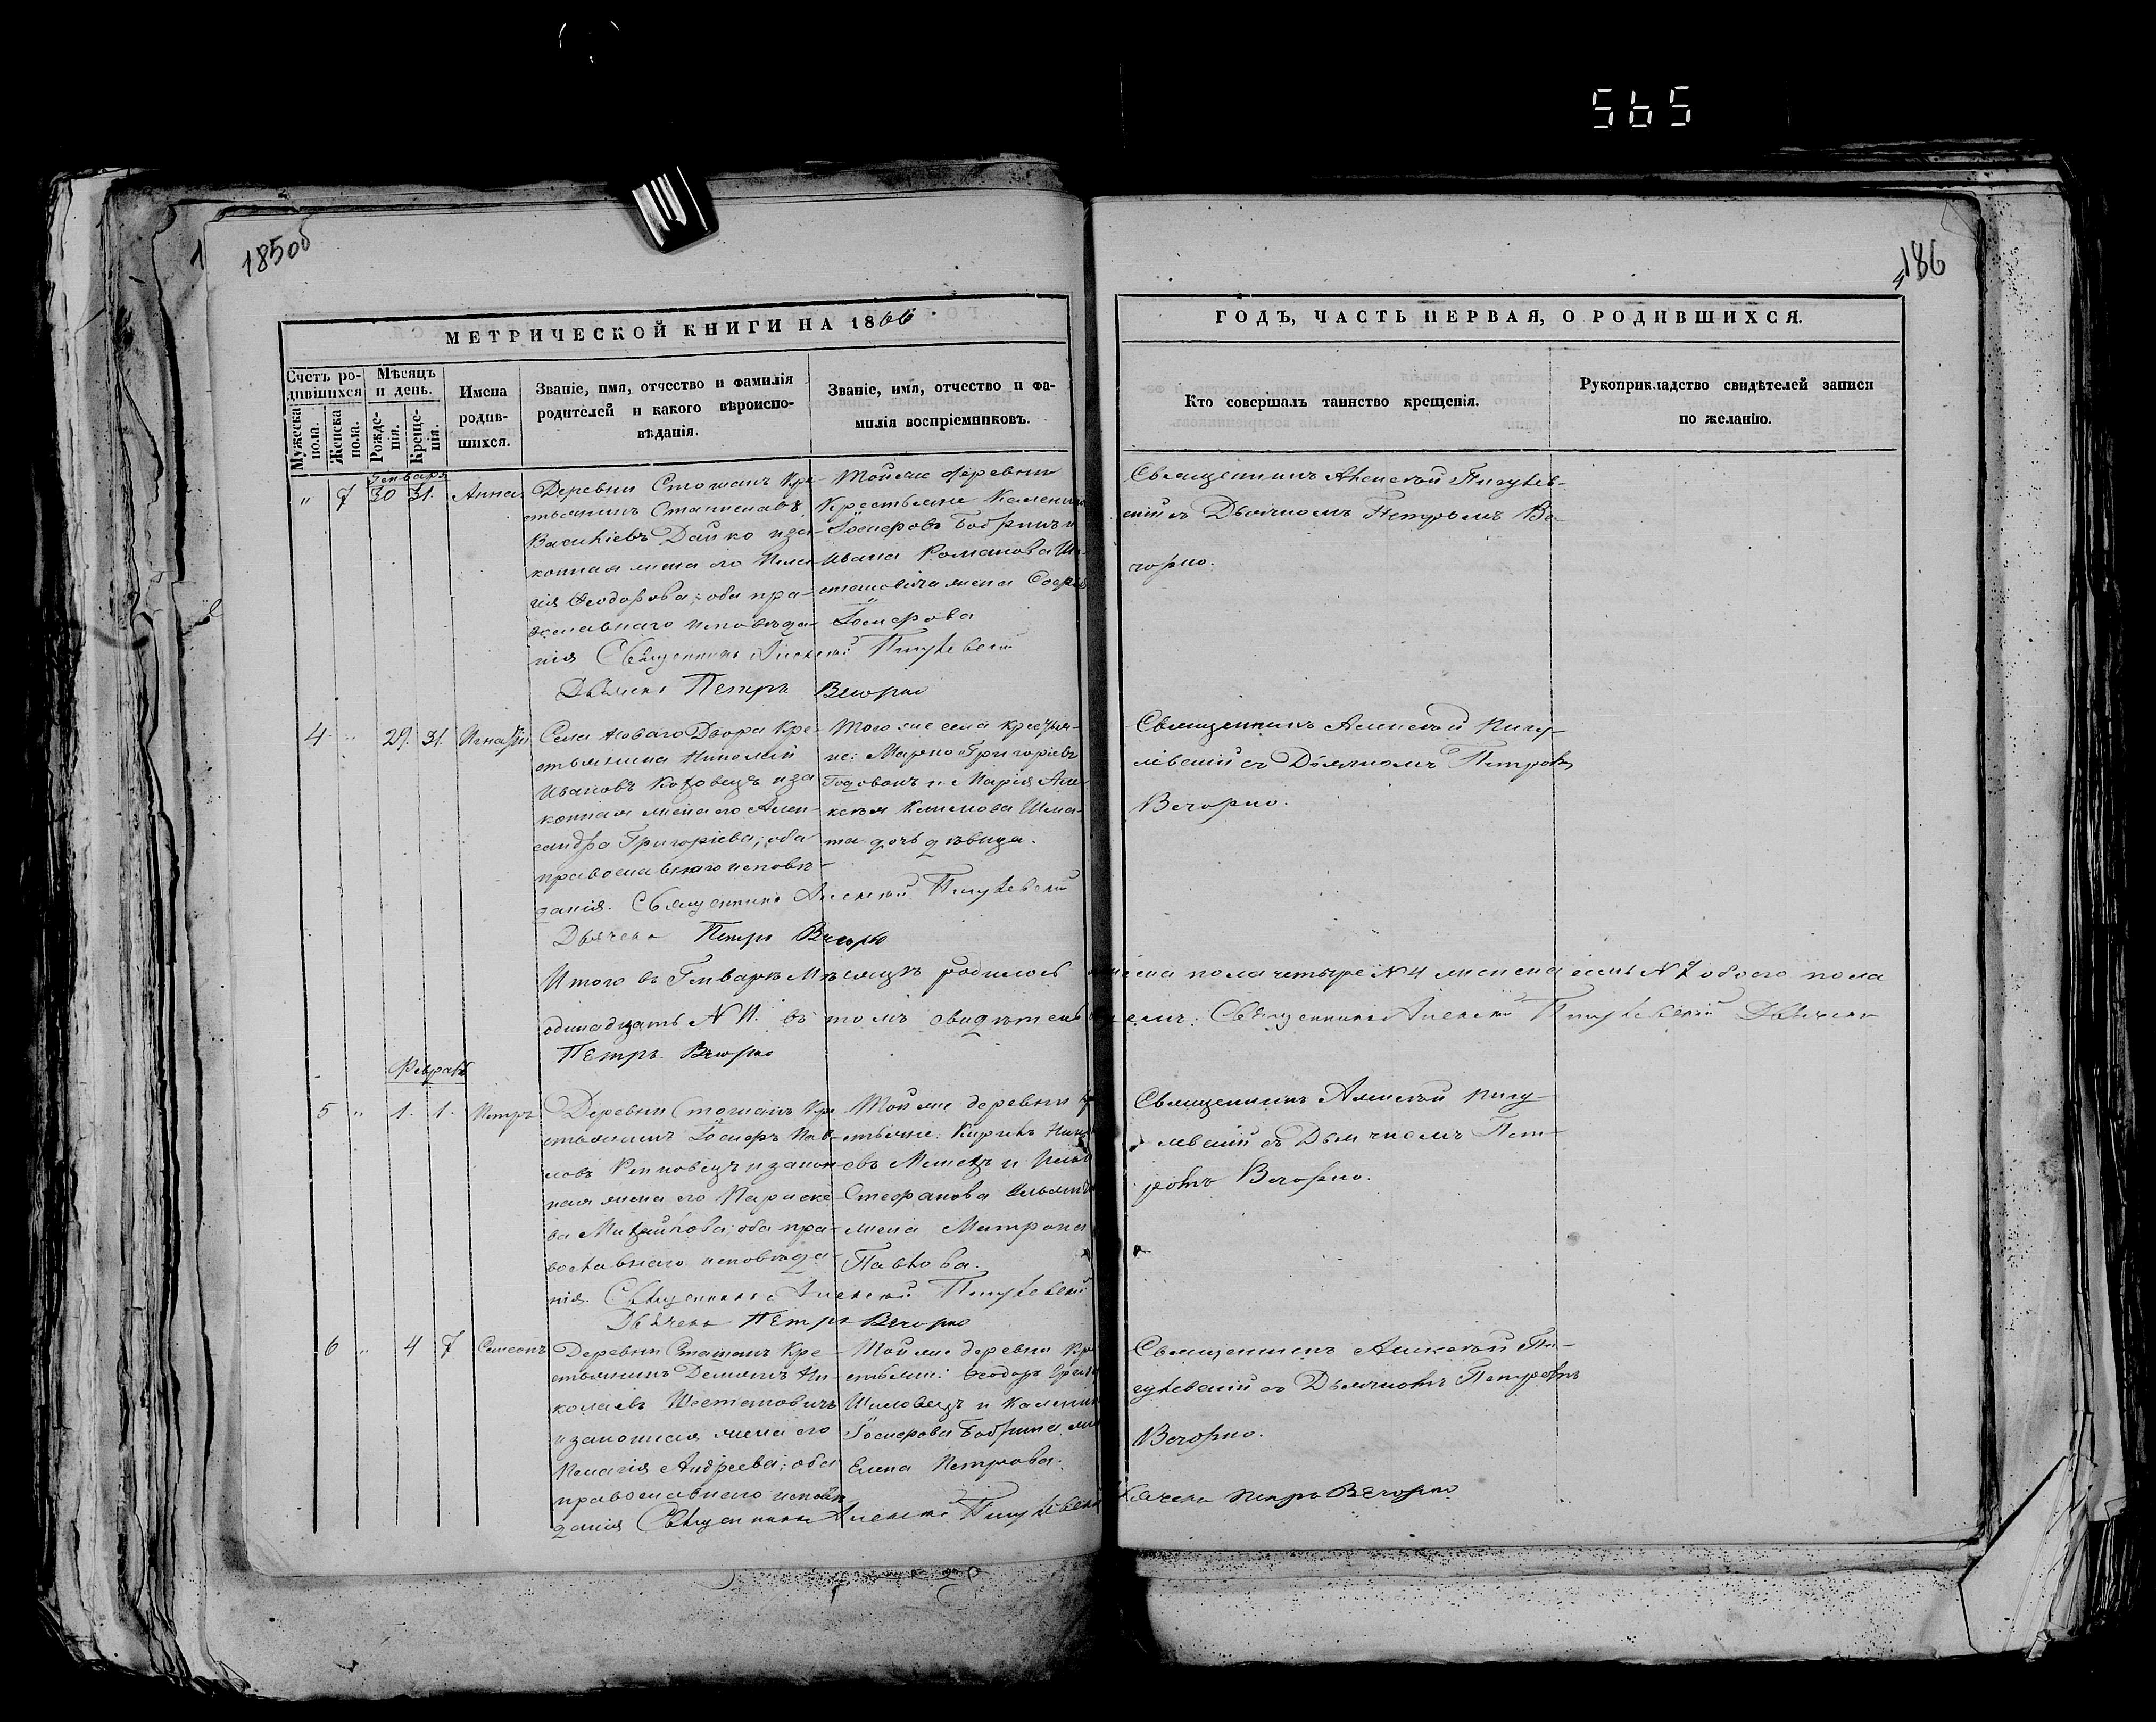 565
185об
186
МЕТРИЧЕСКОЙ КНИГИ НА 1866
ГОДЪ, ЧАСТЬ ПЕРВАЯ, О РОДИВШИХСЯ.
Счетъ ро-
дившихся
Мужеска
пола.
Женска
пола.
Мѣсяцъ
и день.
Рожде-
нія.
Креще-
нія.
Имена
родив-
шихся.
Званіе, имя, отчество и фамилія
родителей и какого вѣроиспо-
вѣданія.
Званіе, имя, отчество и фа-
милія воспріемниковъ.
Кто совершалъ таинство крещенія.
Рукоприкладство свидѣтелей записи
по желанію.
Генваря
" 7 30 31. Анна
Деревни Стошанъ Кре-
стьянинъ Станиславъ
Васильевъ Дайко и за-
конная жена его Пела-
гія Ѳеодорова; оба пра-
вославнаго исповѣда-
нія Священникъ Алексѣй Пигулевскій
Дьячекъ Петръ Вечорко
Той же деревни
Крестьяне
Іосифовъ Бобрикъ и
Ивана Романова
жена
Іосифова
Священникъ Алексѣй Пигулев-
скій съ Дьячкомъ Петромъ Ве-
чорко.
4 " 29. 31. Игнатій
Села Новаго Двора Кре-
стьянина Николай
Ивановъ и за-
конная жена его Алек-
сандра Григоріева; оба
православнаго исповѣ-
данія. Священникъ Алексѣй Пигулевскій
Дьячекъ Петръ Вечорко
Того же села крестья-
не: Марко Григоріевъ
и Марія Але-
ксѣя Климова Шма-
та дочь дѣвица.
Священникъ Алексѣй Пигу-
левскій съ Дьячкомъ Петромъ
Вечорко.
Итого въ Генварѣ Мѣсяцѣ родилось мужеска пола четыре N 4 женска семь N 7 обоего пола
одинадцать N 11. въ томъ свидѣтельствуемъ: Священникъ Алексѣй Пигулевскій Дьячекъ
Петръ Вечорко
Февраль
5 " 1. 1. Петръ
Деревни Стошанъ Кре-
стьянинъ Іосифъ Пав-
ловъ и закон-
ная жена его Параске-
ва Михайлова; оба пра-
вославнаго исповѣда-
нія. Священникъ Алексѣй Пигулевскій
Дьячекъ Петръ Вечорко
Той же деревни Кре-
стьяне: Кирилъ
и
Стефанова
жена Матрона
Павлова.
Священникъ Алексѣй Пигу-
левскій съ Дьячкомъ Пет-
ромъ Вечорко.
6 " 4 7 Симеонъ
Деревни Стошанъ Кре-
стьянинъ Демянъ Ни-
колаевъ Шостаковичъ
и законная жена его
Пелагія Андреева; оба
православнаго исповѣ-
данія Священникъ Алексѣй Пигулевскій Дьячекъ Петръ Вечорко
Той же деревни Кре-
стьяне: Ѳеодоръ
и
Іосифова Бобрика
Елена Петрова.
Священникъ Алексѣй Пи-
гулевскій съ Дьячкомъ Петромъ
Вечорко.